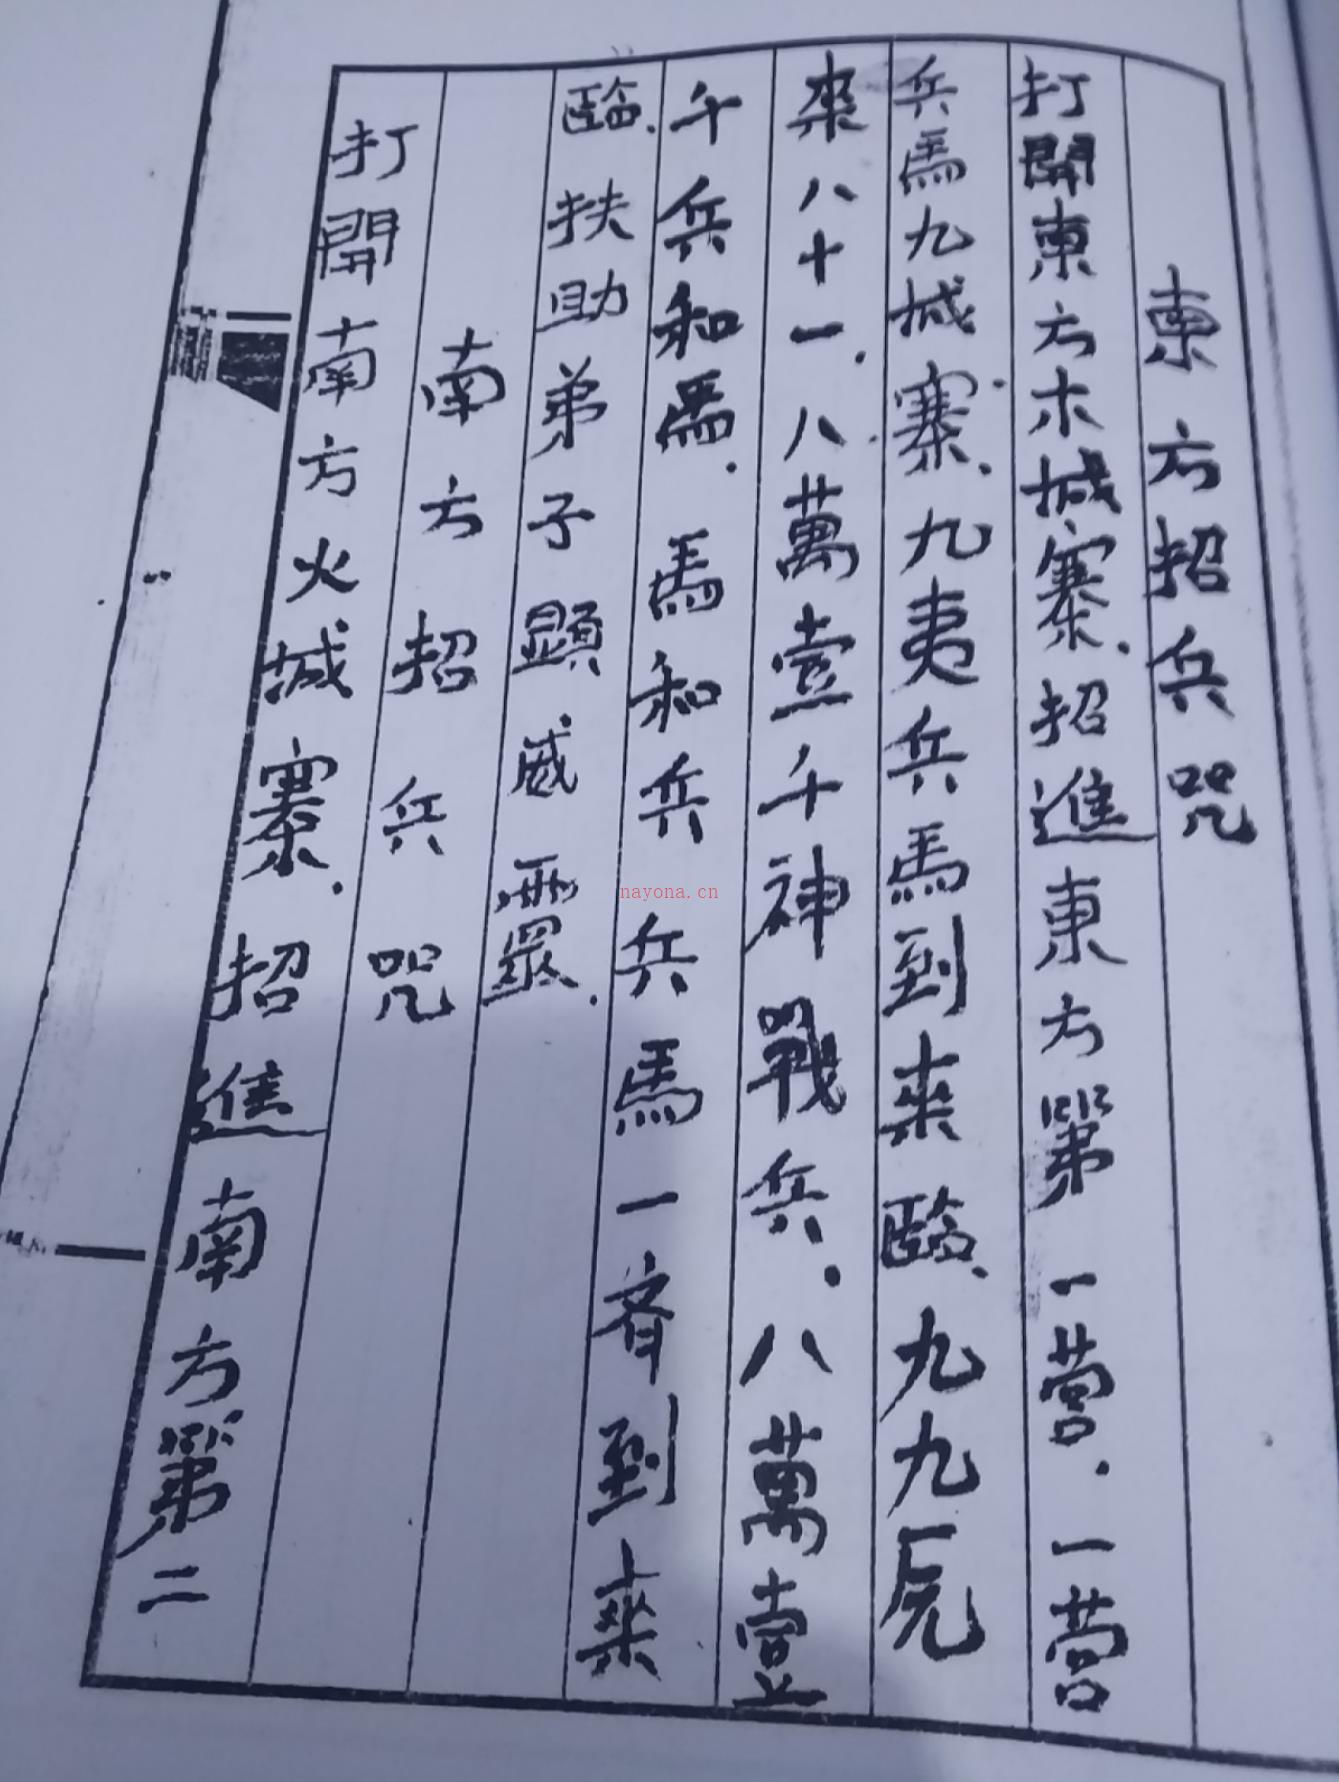 東方招兵咒
打開東方木城寨.招進東方第一營.一營
兵馬九城寨.九夷兵馬到来臨.九九原
来八十一.八萬壹千神戰兵.八萬壹
千兵和馬.馬和兵兵馬一齊到来
臨.扶助弟子顕威靈.
南方招兵咒
打開南方火城寨.招進南方第二
nayona.cn